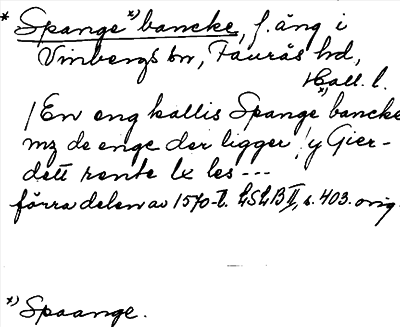 * Spange *) bancke, f. äng i
Vinbergs sn, Faurås hd,
Hall. l.
/En eng kallis Spange *) bancke
mz de enge der ligger / y Gier-
dett rente lx les ---
förra delen av 1570-t. LSLB II, s. 403. orig.
*) Spaange.